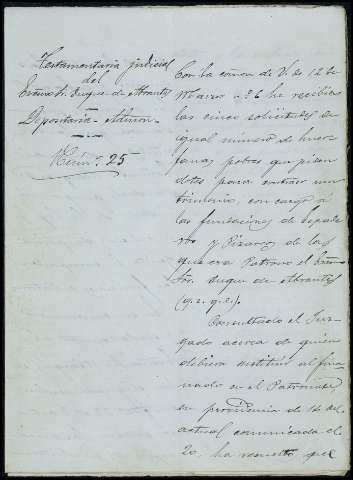 Testamentaria judicial
del
Excmo. Sr. Duque de Abrantes
Depositaría - Admon.
Núm. 25
Con la comon. de V. de 12 de
Marzo nº 26 he recibido
las cinco solicitudes de
igual número de huér-
fanas pobres que piden
dotes para contraer ma-
trimonio, con cargo á
las fundaciones de
y Pizarro de las
que era Patrono el Excmo.
Sor. Duque de Abrantes
(q. e. g. e.).
Consultado el Juz-
gado acerca de quien
debiera sustituir al fi-
nado en el Patronato,
en providencia de 14 del
actual comunicada el
20, ha resuelto que